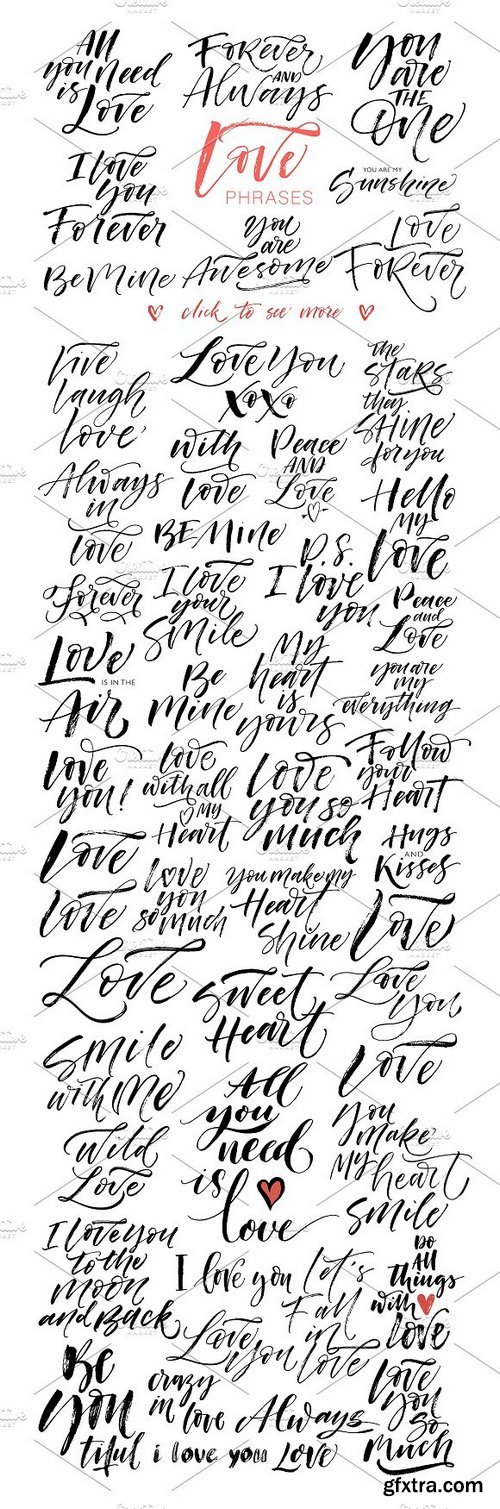 All
you need
is
Love
Forever
AND
Always
You
are
THE
One
Love
PHRASES
I love
you
Forever
YOU ARE MY
Sunshine
You
are
Awesome
Love
Forever
Be Mine
click to see more
live
laugh
love
Love You
xoxo
the
stars
they
shine
for you
with
love
Peace
AND
Love
Always
in
love
Hello
my
love
BE Mine
P.S.
I love
you
Forever
I love
your
Smile
Peace
and
Love
Love
IS IN THE
Air
Be
mine
My
heart
is
yours
you are
my
everything
love
you!
love
with all
my
Heart
Love
you so
much
Follow
your
Heart
Love
Hugs
AND
Kisses
love
you
so much
You make my
Heart
Shine
Love
Love
Love
Sweet
Heart
Love
you
Smile
with Me
Love
All
you
need
is
love
You
make
my heart
smile
Wild
Love
I love you
to the
moon
and Back
I love you
Let's
Fall
in
love
Do
All
things
with
love
Love
You
Be
You
tiful
crazy
in
love
Always
Love
you
so
much
i love you
Love
gfxtra.com